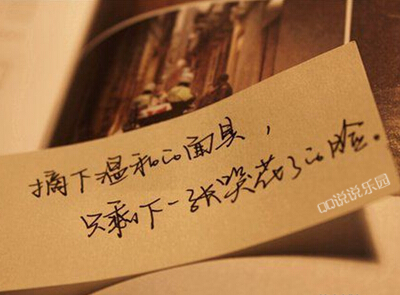 摘下温和的面具，
只剩下一张哭花了的脸。
QQ说说乐园